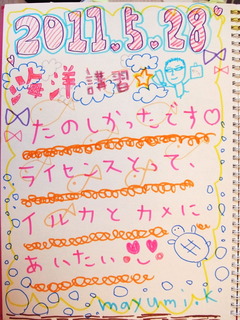 2011.5.28
海洋講習☆
たのしかったです♡
ライセンスとって、
イルカとカメに
あいたい
mayumi.k